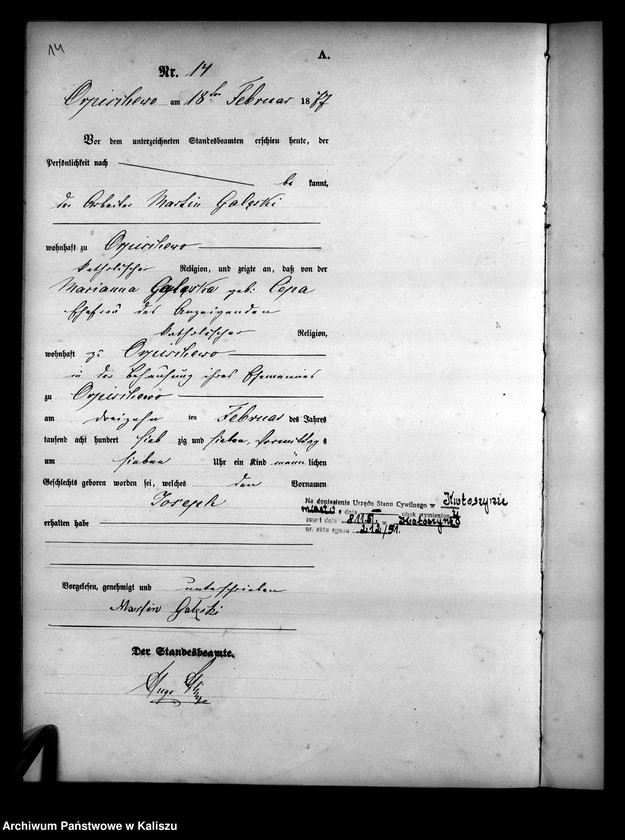 14
A.
Nr. 14
Orpischewo am 18ten Februar 1877
Vor dem unterzeichneten Standesbeamten erschien heute, der
Persönlichkeit nach
be kannt,
der Arbeiter Martin Galęski
wohnhaft zu Orpischewo
katholischer Religion, und zeigte an, daß von der
Marianna Galęska geb. Cepa
Ehefrau des Anzeigenden
katholischer Religion,
wohnhaft zu Orpischewo
in der Behausung ihres Ehemannes
zu Orpischewo
am dreizehn ten Februar des Jahres
tausend acht hundert sieb zig und sieben, Vormittag s
um sieben Uhr ein Kind männ lichen
Geschlechts geboren worden sei, welches den Vornamen
Joseph
erhalten habe
Na doniesienie Urzędu Stanu Cywilnego w Krotoszynie
miasto z dnia – obok wymieniony
zmarł dnia w Krotoszynie
nr. aktu zgonu 212/51.
Vorgelesen, genehmigt und unterschrieben
Martin Galęski
Der Standesbeamte.
Hugo
Archiwum Państwowe w Kaliszu